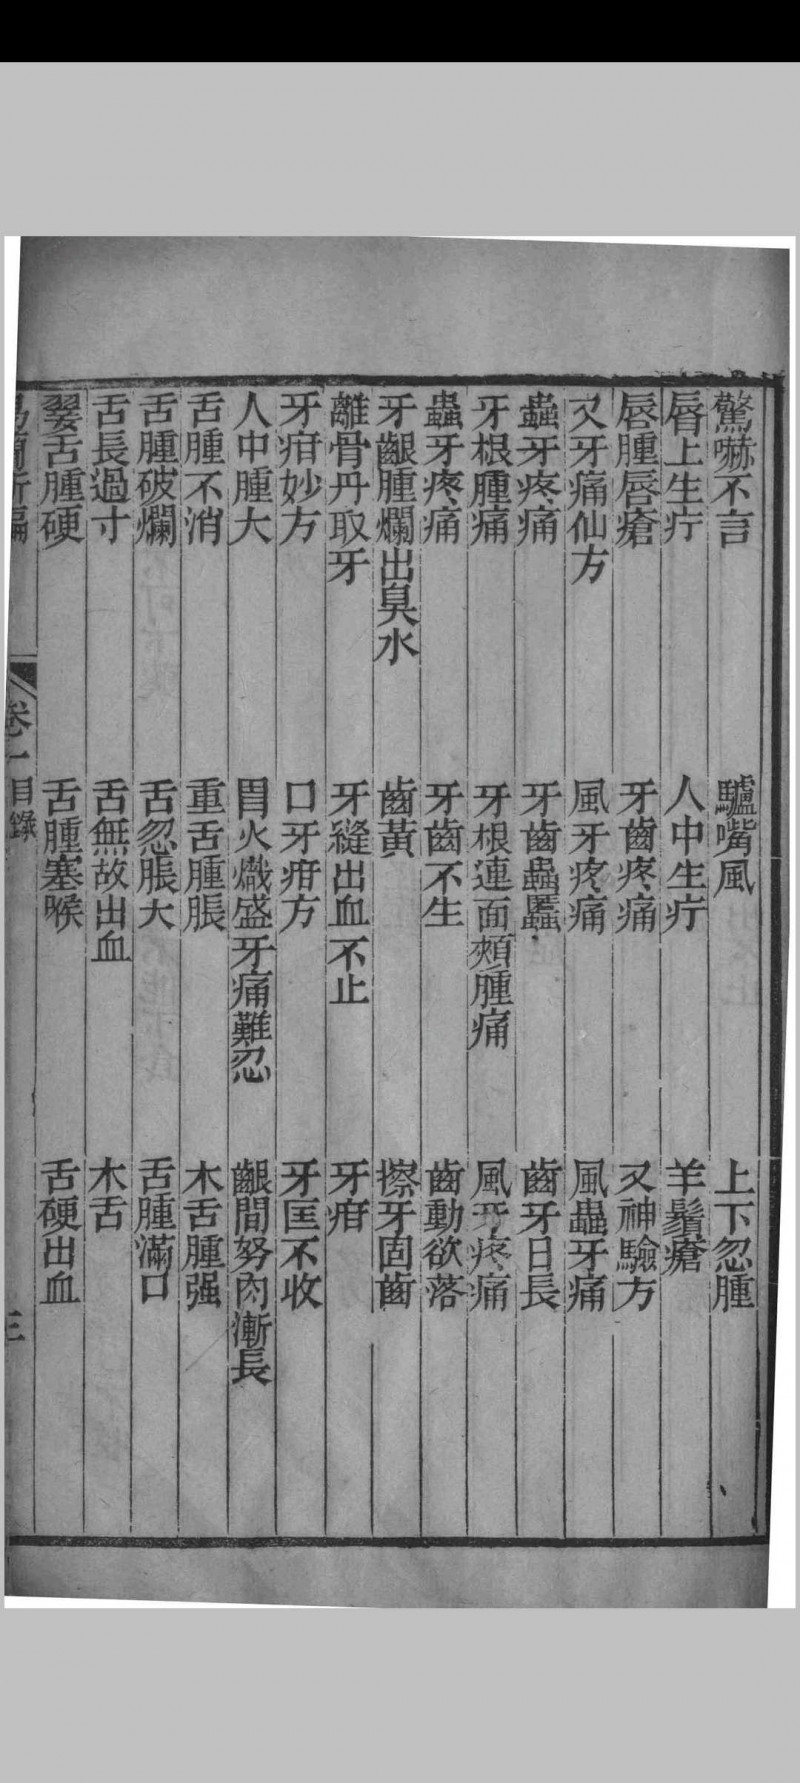 驚嚇不言 驢嘴風 上下忽腫
唇上生疔 人中生疔 羊鬚瘡
唇腫唇瘡 牙齒疼痛 又神驗方
又牙痛仙方 風牙疼痛 風蟲牙痛
蟲牙疼痛 牙齒蟲䘌 齒牙日長
牙根腫痛 牙根連面頰腫痛 風牙疼痛
蟲牙疼痛 牙齒不生 齒動欲落
牙齦腫爛出臭水 齒黃 擦牙固齒
離骨丹取牙 牙縫出血不止 牙疳
牙疳妙方 口牙疳方 牙匡不收
人中腫大 胃火熾盛牙痛難忍 齦間努肉漸長
舌腫不消 重舌腫脹 木舌腫强
舌腫破爛 舌忽脹大 舌腫滿口
舌長過寸 舌無故出血 木舌
舌腫硬 舌腫塞喉 舌硬出血
卷一目錄 三